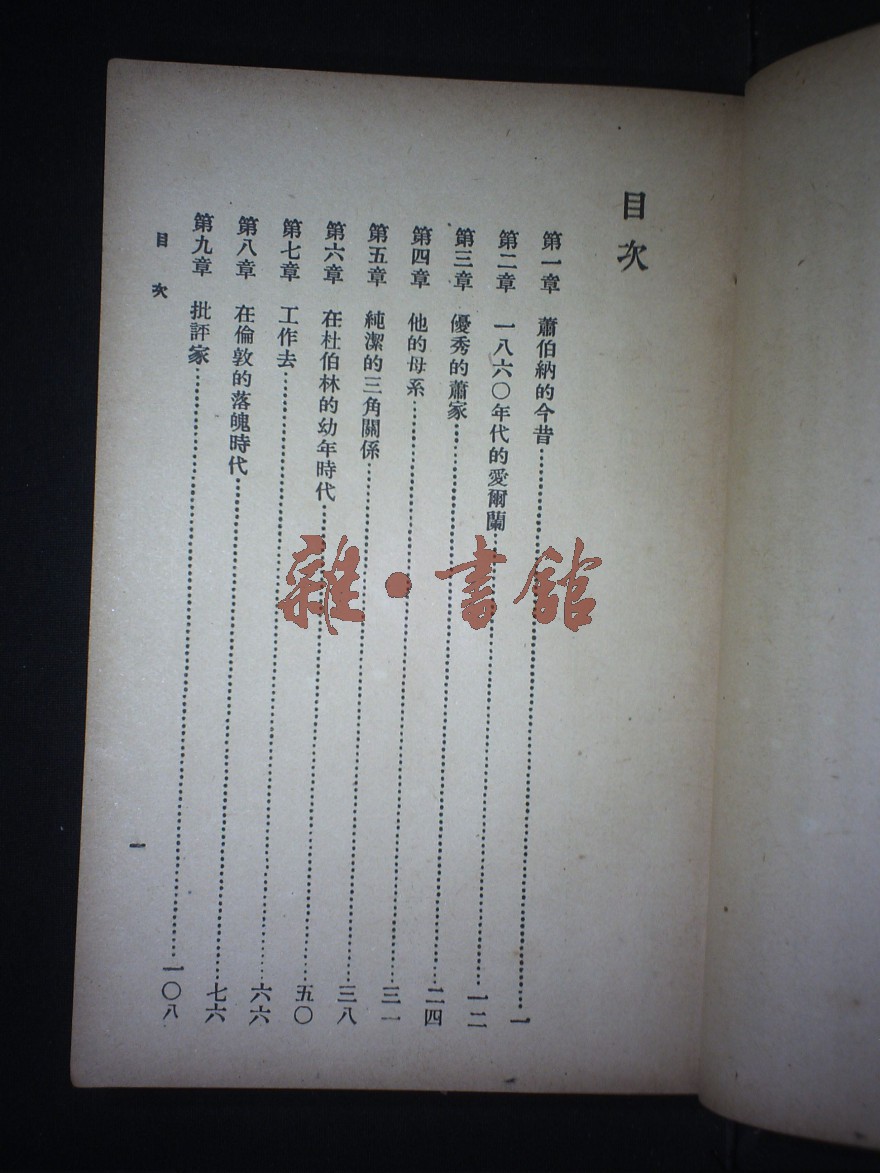 目次
第一章　蕭伯納的今昔…………一
第二章　一八六〇年代的愛爾蘭…………一二
第三章　優秀的蕭家…………二四
第四章　他的母系…………三一
第五章　純潔的三角關係…………三八
第六章　在杜伯林的幼年時代…………五〇
第七章　工作去…………六六
第八章　在倫敦的落魄時代…………七六
第九章　批評家…………一〇八
目次
一
雜·書館